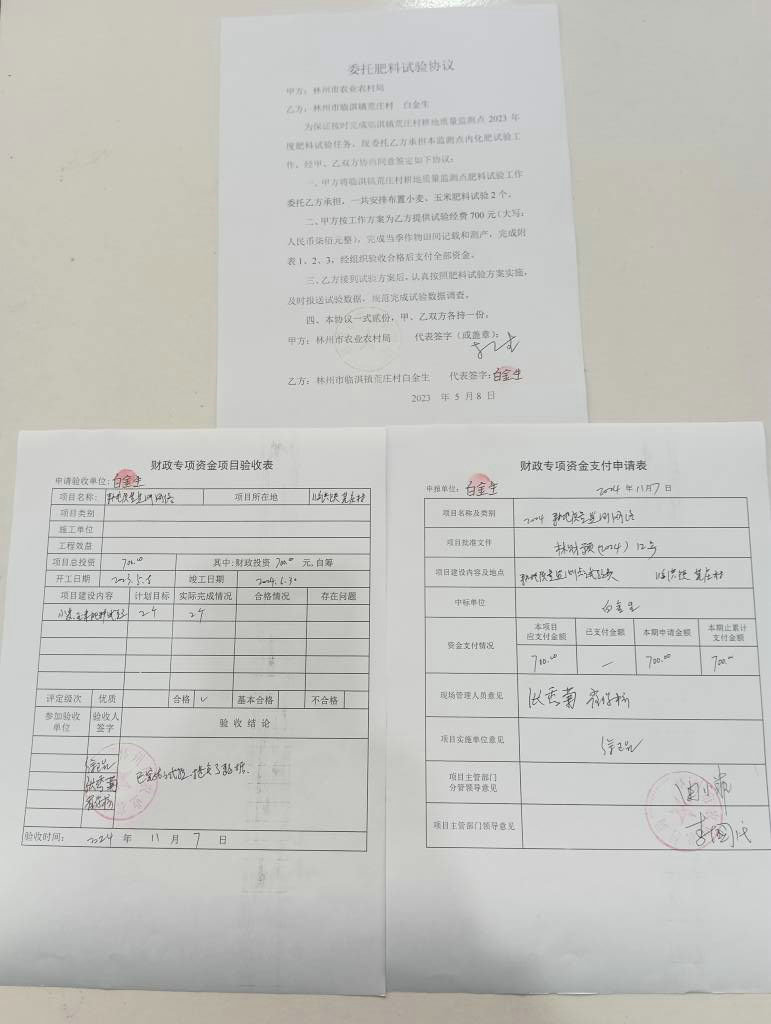 委托肥料试验协议
甲方：林州市农业农村局
乙方：林州市临淇镇荒庄村 白金生
为保证按时完成临淇镇荒庄村耕地质量监测点 2023 年
度肥料试验任务，现委托乙方承担本监测点内化肥试验工
作，经甲、乙双方协商同意签定如下协议：
一、甲方将临淇镇荒庄村耕地质量监测点肥料试验工作
委托乙方承担，一共安排布置小麦、玉米肥料试验 2 个。
二、甲方按工作方案为乙方提供试验经费 700 元（大写：
人民币柒佰元整），完成当季作物田间记载和测产，完成附
表 1、2、3，经组织验收合格后支付全部资金。
三、乙方接到试验方案后，认真按照肥料试验方案实施，
及时报送试验数据，规范完成试验数据调查。
四、本协议一式贰份，甲、乙双方各持一份。
甲方：林州市农业农村局 代表签字（或盖章）：
乙方：林州市临淇镇荒庄村白金生 代表签字：白金生
2023 年 5 月 8 日
财政专项资金项目验收表
申请验收单位：白金生
项目名称： 耕地质量监测网络 项目所在地 临淇镇荒庄村
项目类别
施工单位
工程效益
项目总投资 700.00 其中：财政投资 700.00 元，自筹
开工日期 2023.5.8 竣工日期 2024.6.30
项目建设内容 计划目标 实际完成情况 合格情况 存在问题
小麦、玉米肥料试验 2个 2个
评定级次 优质 合格 ✓ 基本合格 不合格
参加验收单位 验收人签字 验收结论
张秀菊
已完成了试验，提交了数据。
验收时间： 2024 年 11 月 7 日
财政专项资金支付申请表
申报单位：白金生 2024 年 11月7 日
项目名称及类别 2024 耕地质量监测网络
项目批准文件 林财预（2024）12号
项目建设内容及地点 耕地质量监测点试验 临淇镇荒庄村
中标单位 白金生
资金支付情况 本项目应支付金额 已支付金额 本期申请金额 本期止累计支付金额
700.00 — 700.00 700.00
现场管理人员意见 张秀菊
项目实施单位意见
项目主管部门分管领导意见
项目主管部门领导意见